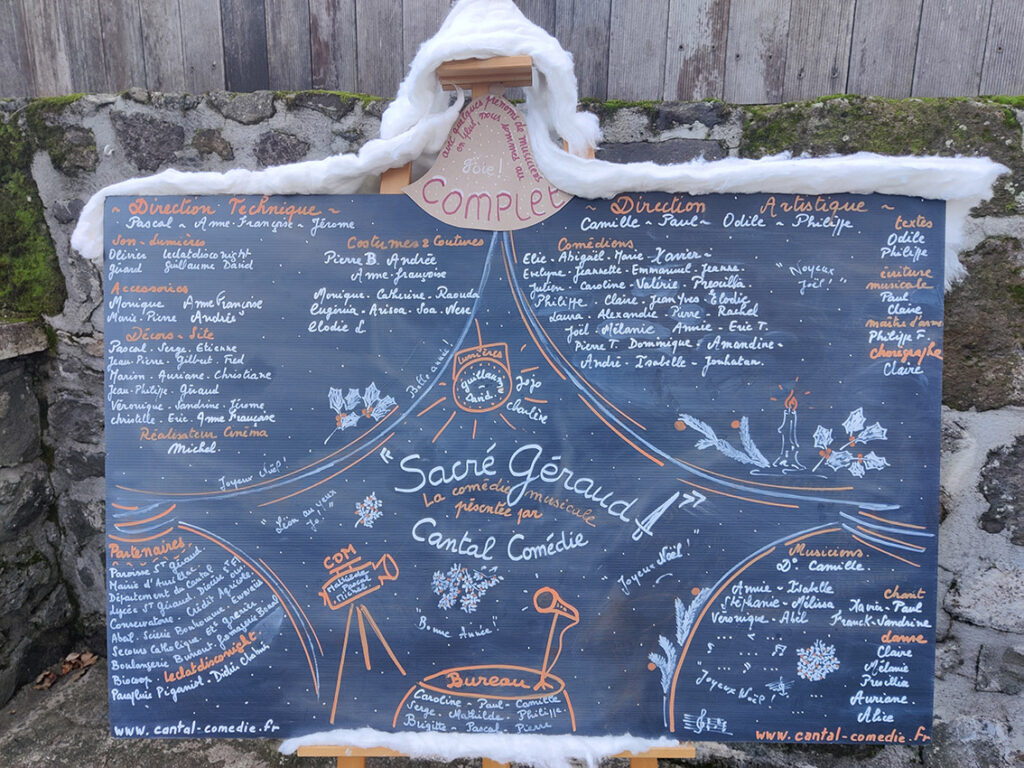 avec quelques prénoms de musiciens
nous sommes au
Joie!
COMPLET
~ Direction Technique ~
Pascal - Anne-Françoise - Jérome
Son - Lumières
Olivier leclatdisconight
Géraud Guillaume David
Accessoires
Monique Anne Françoise
Marie-Pierre Andrés
Décors - Site
Pascal - Serge - Etienne
Jean-Pierre - Gilbert - Fred
Marion - Auriane - Christiane
Jean-Philippe - Géraud
Véronique - Sandrine - Jérome
Christelle - Eric - Anne Françoise
Réalisateur Cinéma
Michel
Costumes & Coutures
Pierre B. Andrée
Anne-françoise
Monique - Catherine - Raouda
Eugénia - Arisoa - Joa - Nese
Elodie L
~ Direction Artistique ~
Camille - Paul - Odile - Philippe
Comédiens
Elie - Abigaël - Marie - Xavier -
Evelyne - Jeannette - Emmanuel - Jeanne -
Julien - Caroline - Valérie - Prescilla
Philippe - Claire - Jean Yves - Elodie
Laura - Alexandre - Pierre - Rachel
Joël - Mélanie - Annie - Eric T.
Pierre T. Dominique - Amandine -
André - Isabelle - Jonhatan.
"Noyeux
Joël!"
textes
Odile
Philippe
écriture
musicale
Paul
Claire
maître d'arme
Philippe F.
chorégraphe
Claire
Belle année!
Lumières
Guillaume
David
Jojo
Charlère
Joyeux Noël!
"Sacré Géraud!"
La comédie musicale
présentée par
Cantal Comédie
"Joyeux Noël!"
CDM
Mathilde
Pascal
Michel
"Bonne Année"
Bureau
Caroline - Paul - Camille
Serge - Mathilde - Philippe
Brigitte - Pascal - Pierre
Partenaires
Paroisse St Géraud
Mairie d'Aurillac
Département du Cantal
Lycée St Géraud
Conservatoire - Crédit Agricole
Secours Catholique
Boulangerie
Biocoop - leclatdisconight
Parapluie Piganiol - Didier
www.cantal-comedie.fr
Musiciens
Dº Camille
Annie - Isabelle
Stéphanie - Mélissa
Véronique - Abel
chant
Xavier - Paul
Franck - Sandrine
danse
Claire
Mélanie
Prescillia
Auriane
Alice
"Joyeux Noël"
www.cantal-comedie.fr